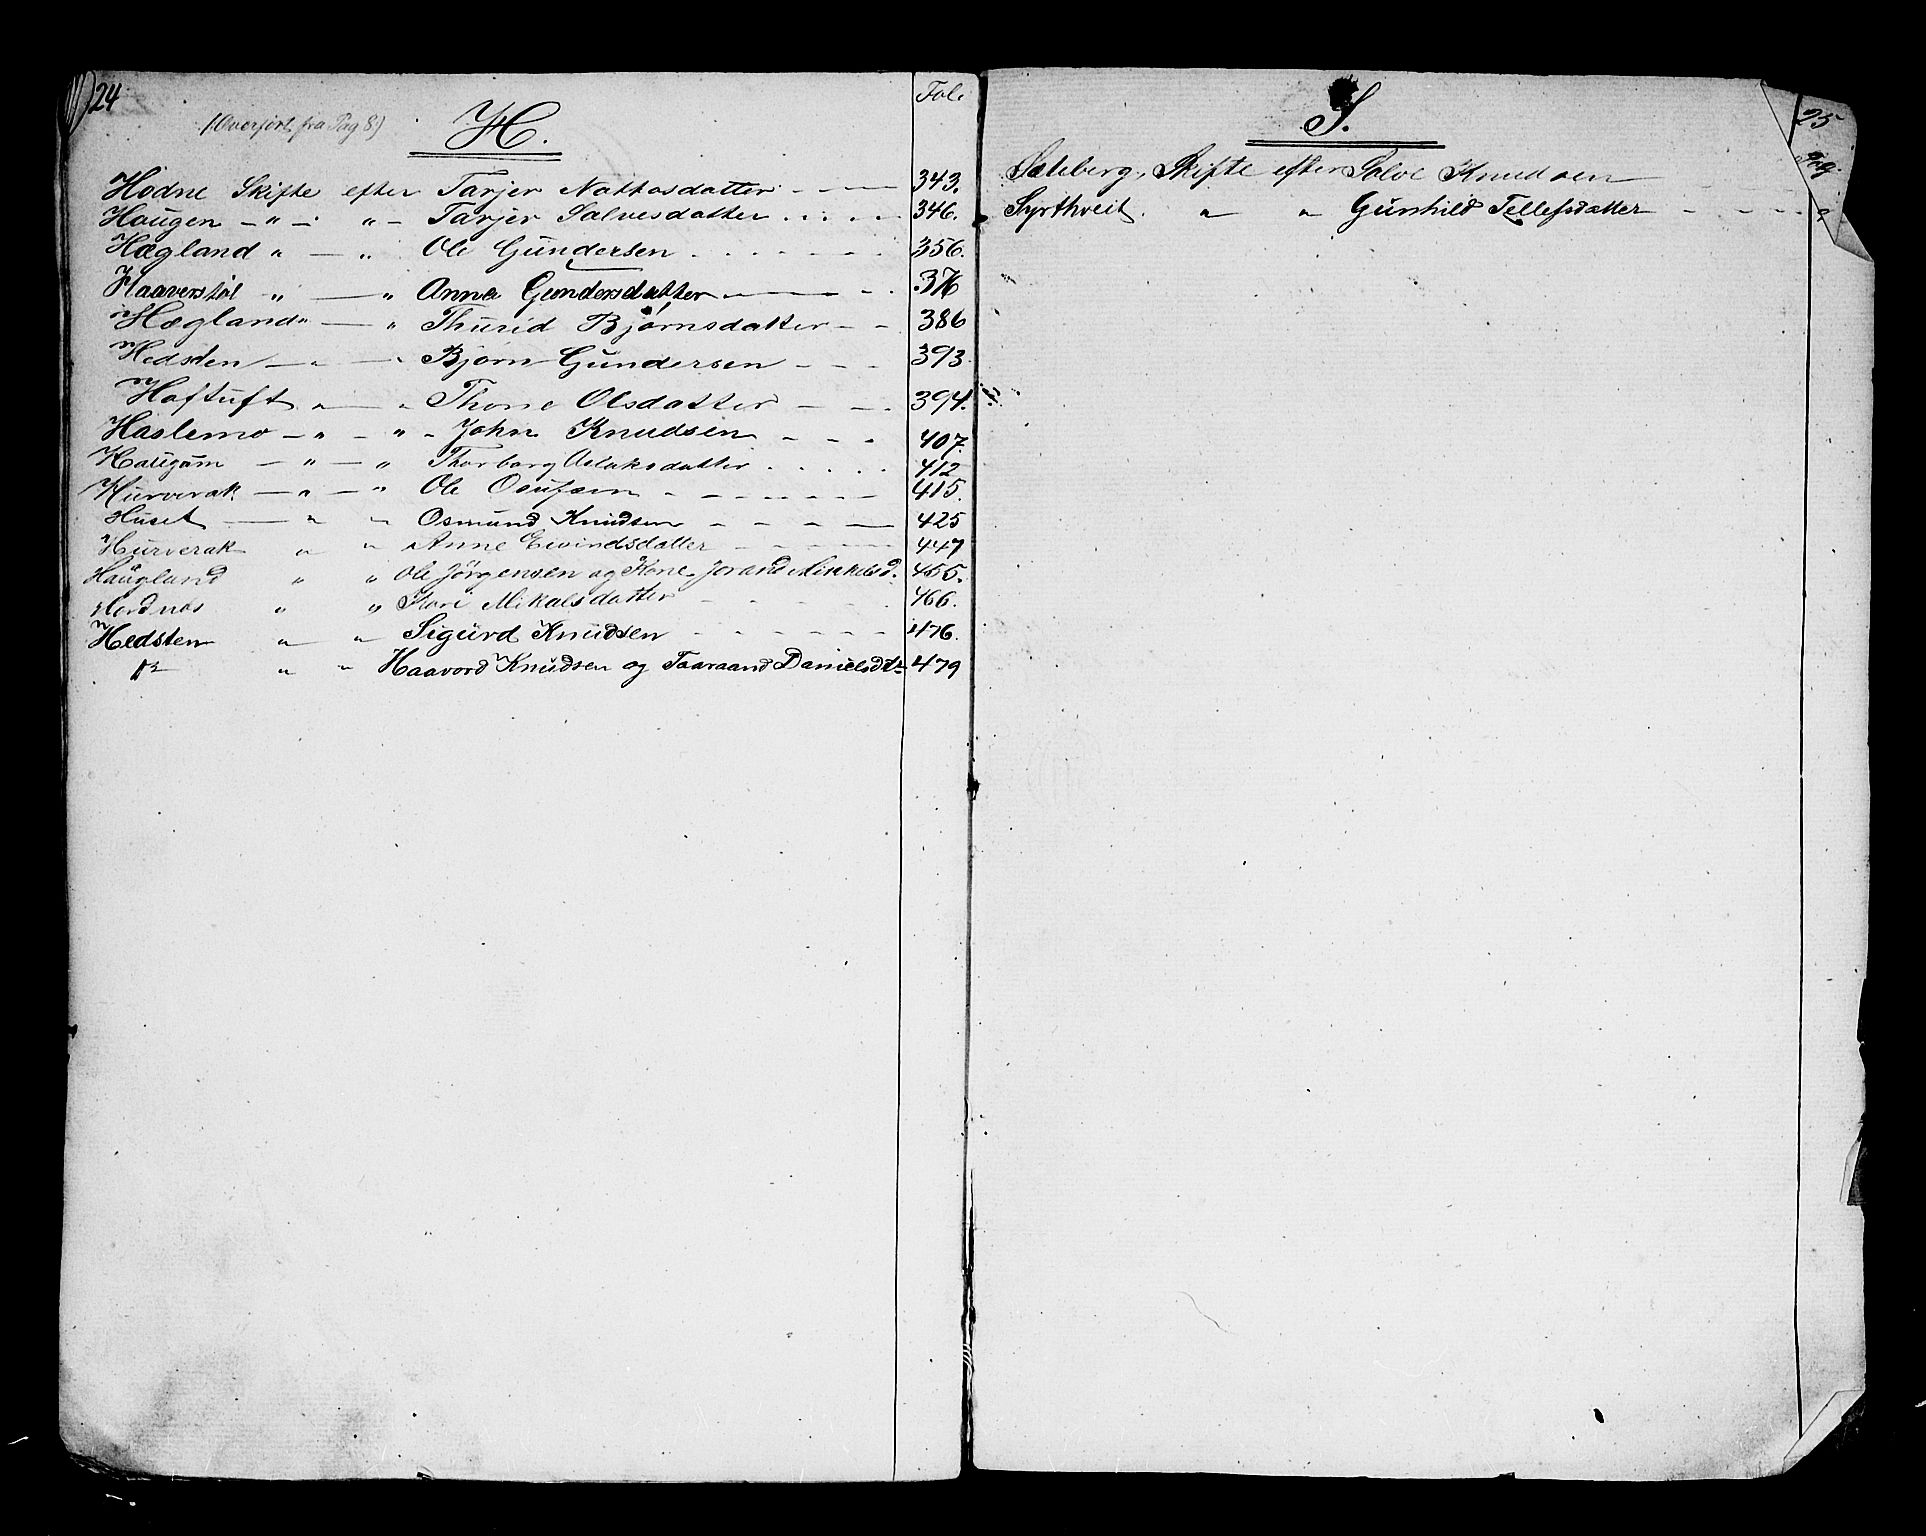 24
(Overført fra Pag 8)
H.
Fol.
Hodne Skifte efter Tarjer Nottosdatter - - - 343.
Hougen - " - " - Tarjer Salvesdatter . . . . 346.
Hægland " — " Ole Gundersen . . . . . . 356.
Haaverstøl " — " Anne Gundersdatter - - - 376
Hægland " — " Thurid Bjørnsdatter - - 386
Hedsten — " — " Bjørn Gundersen - - - 393
Hoftuft " — " Thone Olsdatter - - - 394.
Haslemo - " - " - John Knudsen - - - 407.
Haugum — " — " Thorborg Aslaksdatter . . . . . 412
Hurverak — " — " Ole Osufsen - - - - - - 415.
Huset — " " Osmund Knudsen - - - - 425
Hurverak " " Anne Eivindsdatter - - - - 447
Haugland " " Ole Jörgensen og Kone Jorand Minkelsd. 455.
Hordnæs " " Kari Mikalsdatter - - - - 466.
Hedsten " " Sigurd Knudsen - - - - - - 476.
" " Haavord Knudsen og Taaraand Danielsdtr 479
25
S.
Pag.
Sateberg, Skifte efter Salve Knudsen
Syrthveit " " Gunhild Tellefsdatter - - - -